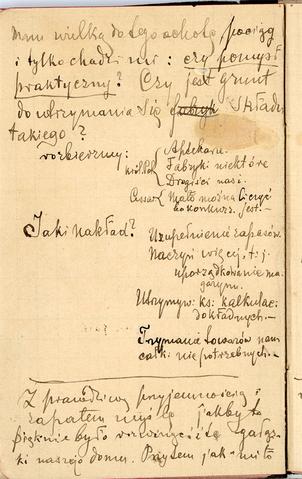 mam wielką do tego ochotę, pociąg
i tylko chodzi mi: czy pomysł
praktyczny? Czy jest grunt
do utrzymania się fabryk składu
takiego?
rozbierzmy:
Aptekarz.
Fabryki niektóre
Drogiści nasi.
Mało można liczyć
bo konkur. jest.-
Jaki nakład?
Uzupełnienie zapasów.
Naczyń więcej, t. j.
uporządkowanie ma-
gazynu.
Utrzymyw. ks: kalkulac:
dokładnych.-
Trzymanie towarów nam
całk: niepotrzebnych.-
Z prawdziwą przyjemnością i
zapałem myślę jakby to
pięknie było rozwinąć tę gałąz-
ki naszego domu. Przytem jak miło